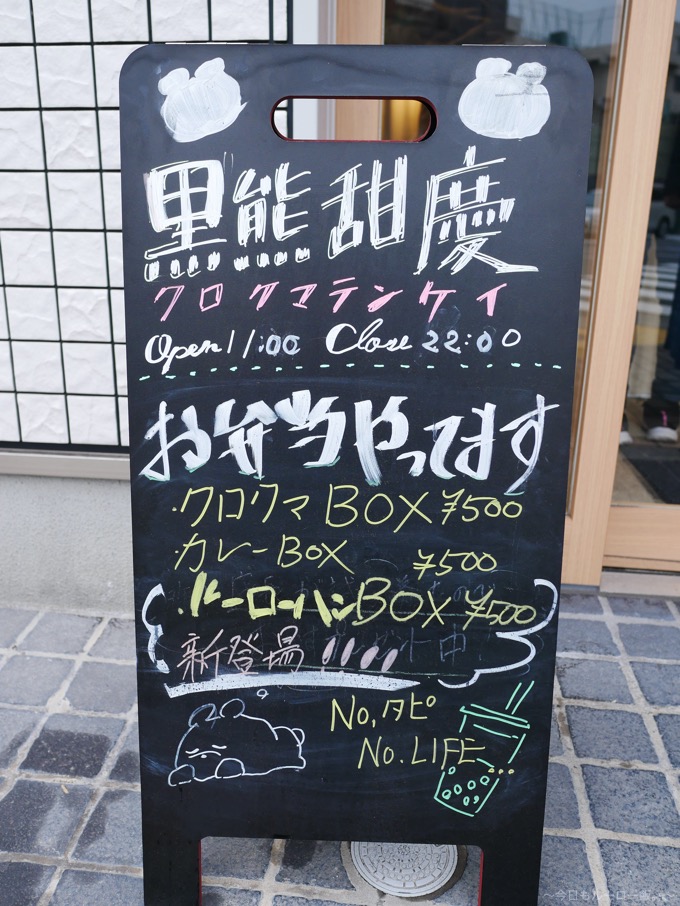 黒熊甜慶
クロクマテンケイ
Open 11:00 Close 22:00
お弁当やってます
・クロクマBOX ¥500
・カレーBOX ¥500
・ルーローハンBOX ¥500
新登場!!!!
No,タピ
No.LIFE...
～今日もルーロー飯